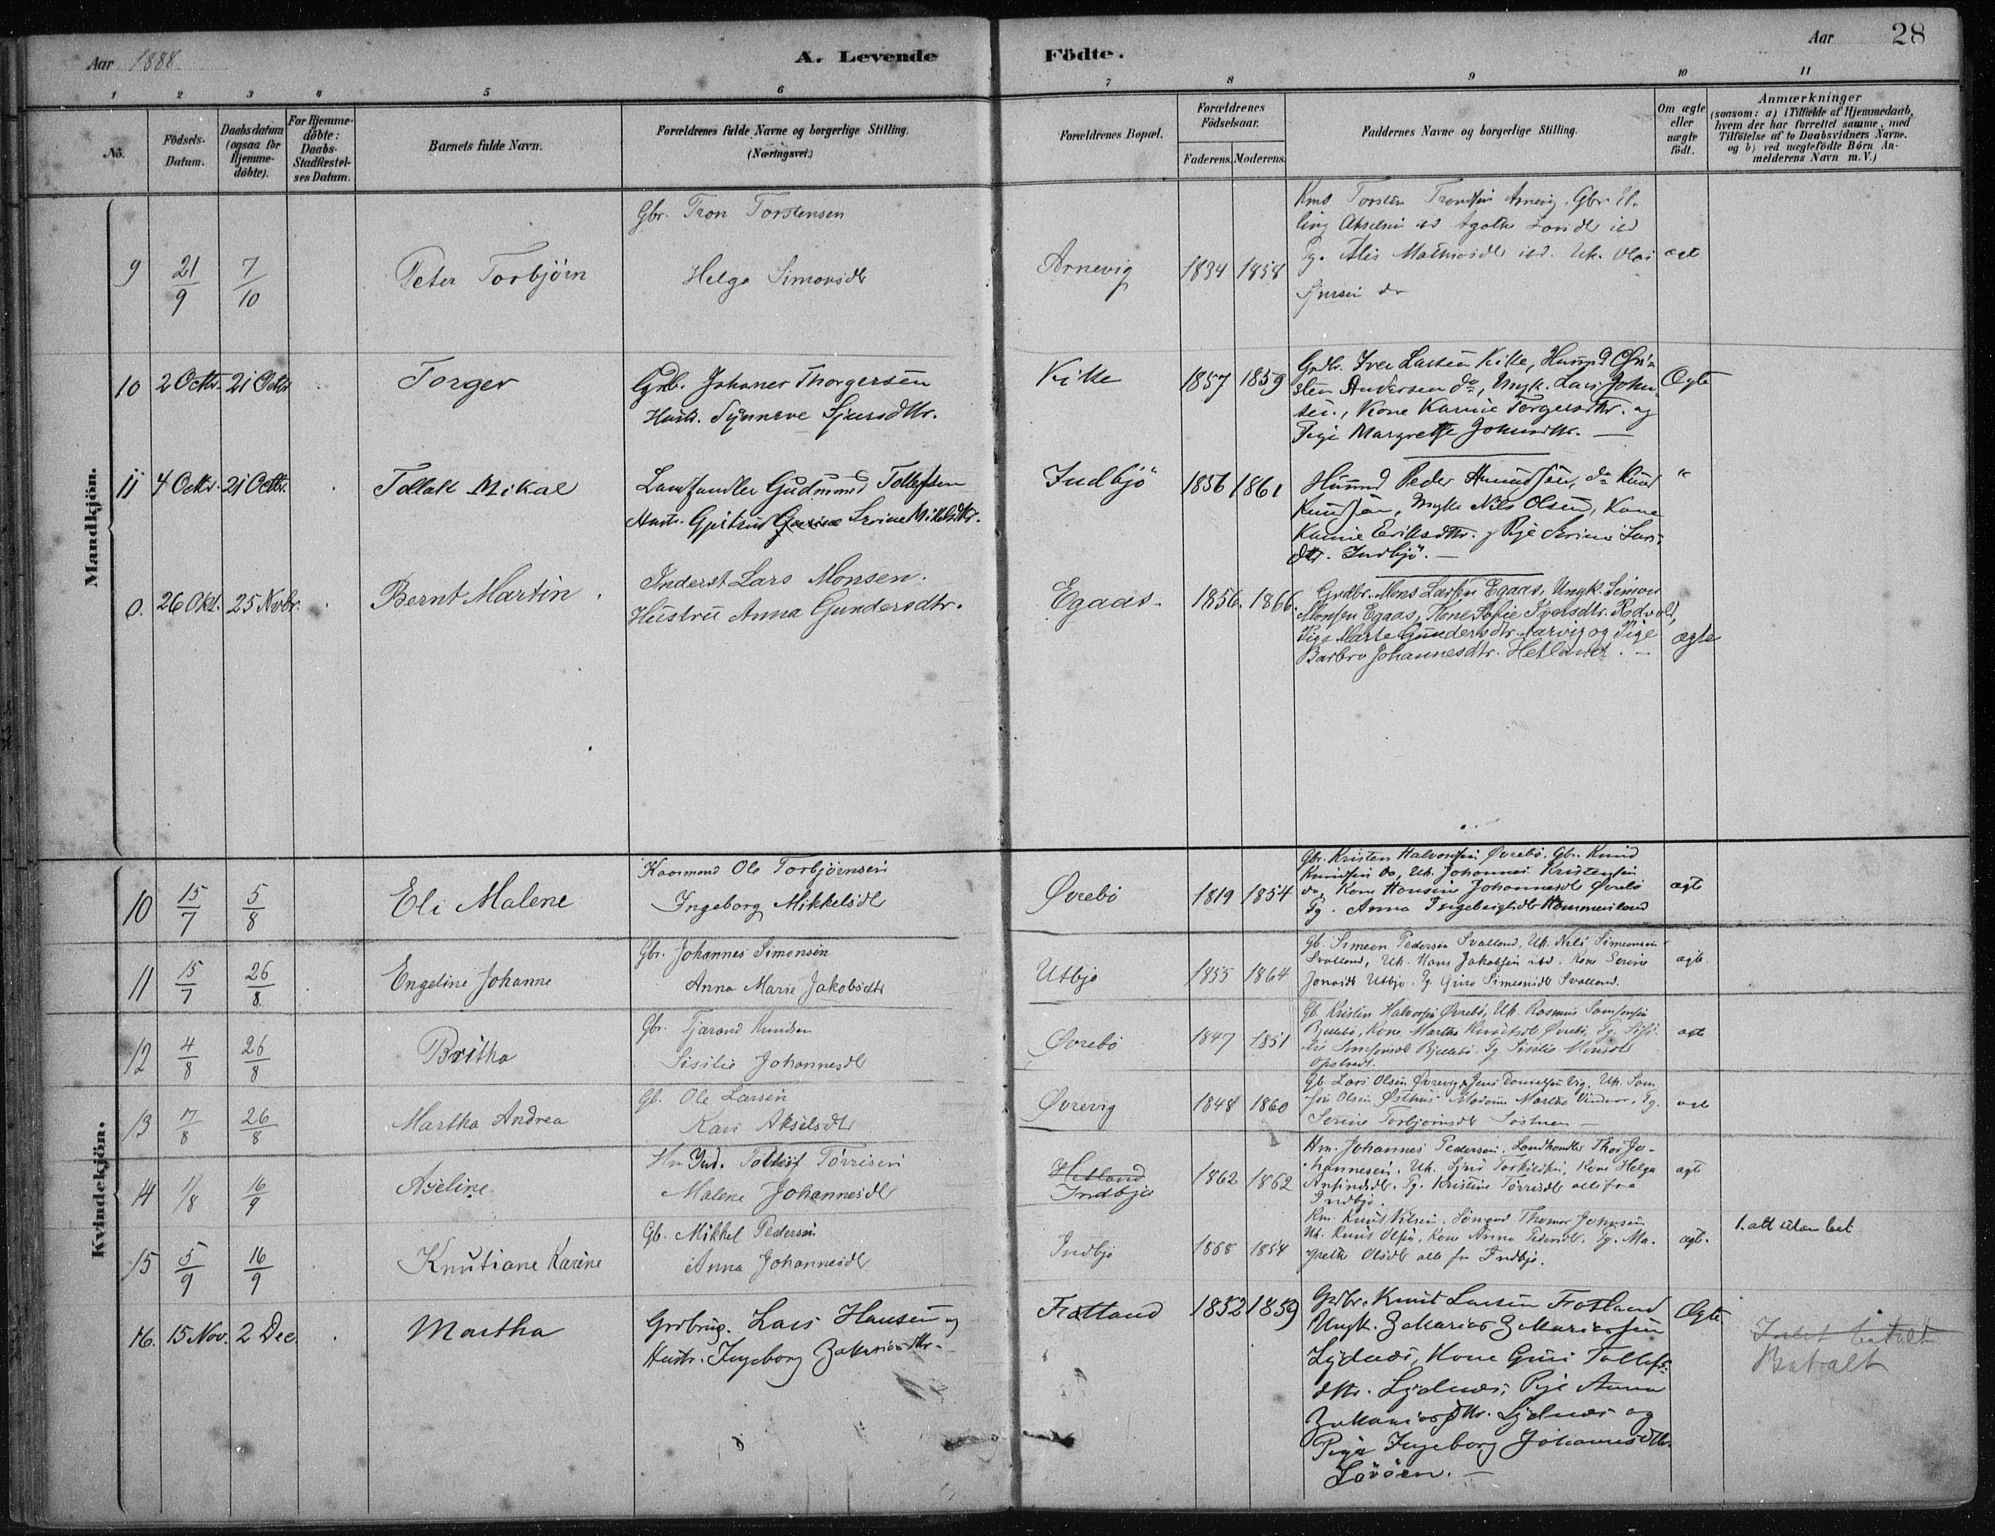 Aar 1888.
A. Levende
Födte.
Aar
28
1 2 3 4 5 6 7 8 9 10 11
No.
Födsels-
Datum.
Daabsdatum
(ogsaa for
Hjemme-
döbte).
For Hjemme-
döbte:
Daabs-
Stadfæstel-
ses Datum.
Barnets fulde Navn.
Forældrenes fulde Navne og borgerlige Stilling.
(Næringsvei.)
Forældrenes Bopæl.
Forældrenes
Födselsaar.
Faderens. Moderens.
Faddernes Navne og borgerlige Stilling.
Om ægte
eller
uægte
födt.
Anmærkninger
(saasom: a) i Tilfælde af Hjemmedaab,
hvem der har forrettet samme, med
Tilföielse af to Daabsvidners Navne.
og b) ved uægtefödte Börn An-
melderens Navn m. V.)
Mandkjön.
9 21/9 7/10 Peter Torbjörn
Gbr. Tron Torstensen
Helga Simonsdt
Arnevig 1834 1858
Torsten Arnevig. Gbr.
ægt
10 2 Octbr. 21 Octbr. Torger
Grb. Johanes Thorgersen
Hustr. Synneve Sjursdtr.
Kikke 1857 1859
Grdb. Iver Larsen Kikke,
sten Andersen do, Ungk. Lars John-
sen, Kone Karine Torgersdtr. og
Pige Margrethe Johnsdtr. —
Ægte
11 4 Octbr. 21 Octbr. Tollak Mikal
Landhandler Gudmund Tollefsen
Hustr. Serine Mikkelsdtr.
Indbjö 1856 1861
Husmd Peder Amundsen, do Knud
Knudsen, Ungk. Nils Olsen, Kone
Karine Eriksdtr. og Pige Serine Lars-
dtr. Indbjö. —
"
0. 26 Okt. 25 Novbr. Bernt Martin
Inderst Lars Monsen.
Hustru Anna Gundersdtr.
Egaas. 1856. 1866.
Grdbr. Mons Larsen Egaas, Ungk. Simon
Monsen Egaas, Kone Sofie Iversdtr. Rødvold,
Pige Marte Gundersdtr. Aarvig og Pige
Barbro Johannesdtr. Hetland. —
ægte
Kvindekjön.
10 15/7 5/8 Eli Malene
Kaarmand Ole Torbjørnsen
Ingeborg Mikkelsdt
Øvrebö 1819 1854
Gbr. Kristen Halvorsen Øvrebö, Gbr. Knud
Knudsen do, Uk. Johannes Kristensen
do, Kone Hansine Johannesdt Øvrebö
Pg. Anna Ingebrigtsdt Hammersland
ægt
11 15/7 26/8 Engeline Johanne
Gbr. Johannes Simonsen
Anna Marie Jakobsdt
Utbjo 1855 1864
Gb. Simeon Pedersen Svalland, Uk. Nils Simeonsen
Svalland, Uk. Hans Jakobsen ibd. Kone Serine
Jonasdt Utbjo. Pg Guro Simeonsdt Svalland.
ægt.
12 4/8 26/8 Britha
Gbr. Tjerand Knudsen
Sisilie Johannesdt
Øvrebö 1847 1851
Gb. Kristen Halvorsen Øvrebö, Uk. Rasmus Samsonsen
Bjellebö, Kone Martha Knudsdt Øvrebö, Pg. Sisi-
lie Samsonsdt Bjellebö. Pg Sisilie Monsdt
Opstredt.
ægt
13 7/8 26/8 Martha Andrea
Gb. Ole Larsen
Kari Akselsdt
Øvrevig 1848 1860
Gb. Lars Olsen Øvrevig, Jens Danielsen Vig, Uk. Sam-
son Olsen Østhus Madame Martha Pg.
Serine Torbjørnsdt —
ægt
14 11/8 16/9 Aseline
Hm Ind. Tollef Tørrisen
Malene Johannesdt
Hetland
Indbjo 1862 1862
Hm. Johannes Pedersen, Landhandler Thor Jo-
hannesen, Uk. Sjur Torkildsen, Kone Helga
Anfinsdt. Pg. Kristine Tørrisdt alle fra
Indbjo.
ægt
15 5/9 16/9 Knutiane Karine
Gb. Mikkel Pedersen
Anna Johannesdt
Indbjo 1858 1854
Km. Knut Nilsen, Thomas Johnsen
Uk. Knut Olsen, Kone Anna Pedersdt. Pg. Ma-
grethe Olsdt alle fr Indbjo.
ægt.
1. alt uten bet
16. 15 Nov. 2 Dec. Martha
Grdbrug. Lars Hansen og
Hustr. Ingeborg Zakariasdtr.
Fratland 1852 1859
Grdbr. Knut Larsen Fratland
Ungk. Zakarias Zakariassen
Lydnes, Kone Guri Tollefs-
dtr. Lydnes, Pige Anna
Zakariasdtr. Lydnes og
Pige Ingeborg Johannesdtr.
Ægte
betalt
Betalt